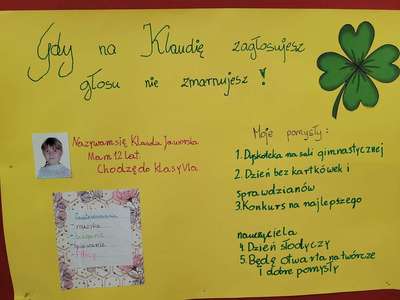 Gdy na Klaudię zagłosujesz
głosu nie zmarnujesz!
Nazywam się Klaudia Jaworska
Mam 12 lat.
Chodzę do klasy VIa
Zainteresowania
muzyka
śpiewanie
Moje pomysły:
1. Dyskoteka na sali gimnastycznej
2. Dzień bez kartkówek i
sprawdzianów
3. Konkurs na najlepszego
nauczyciela
4. Dzień słodyczy
5. Będę otwarta na twórcze
i dobre pomysły